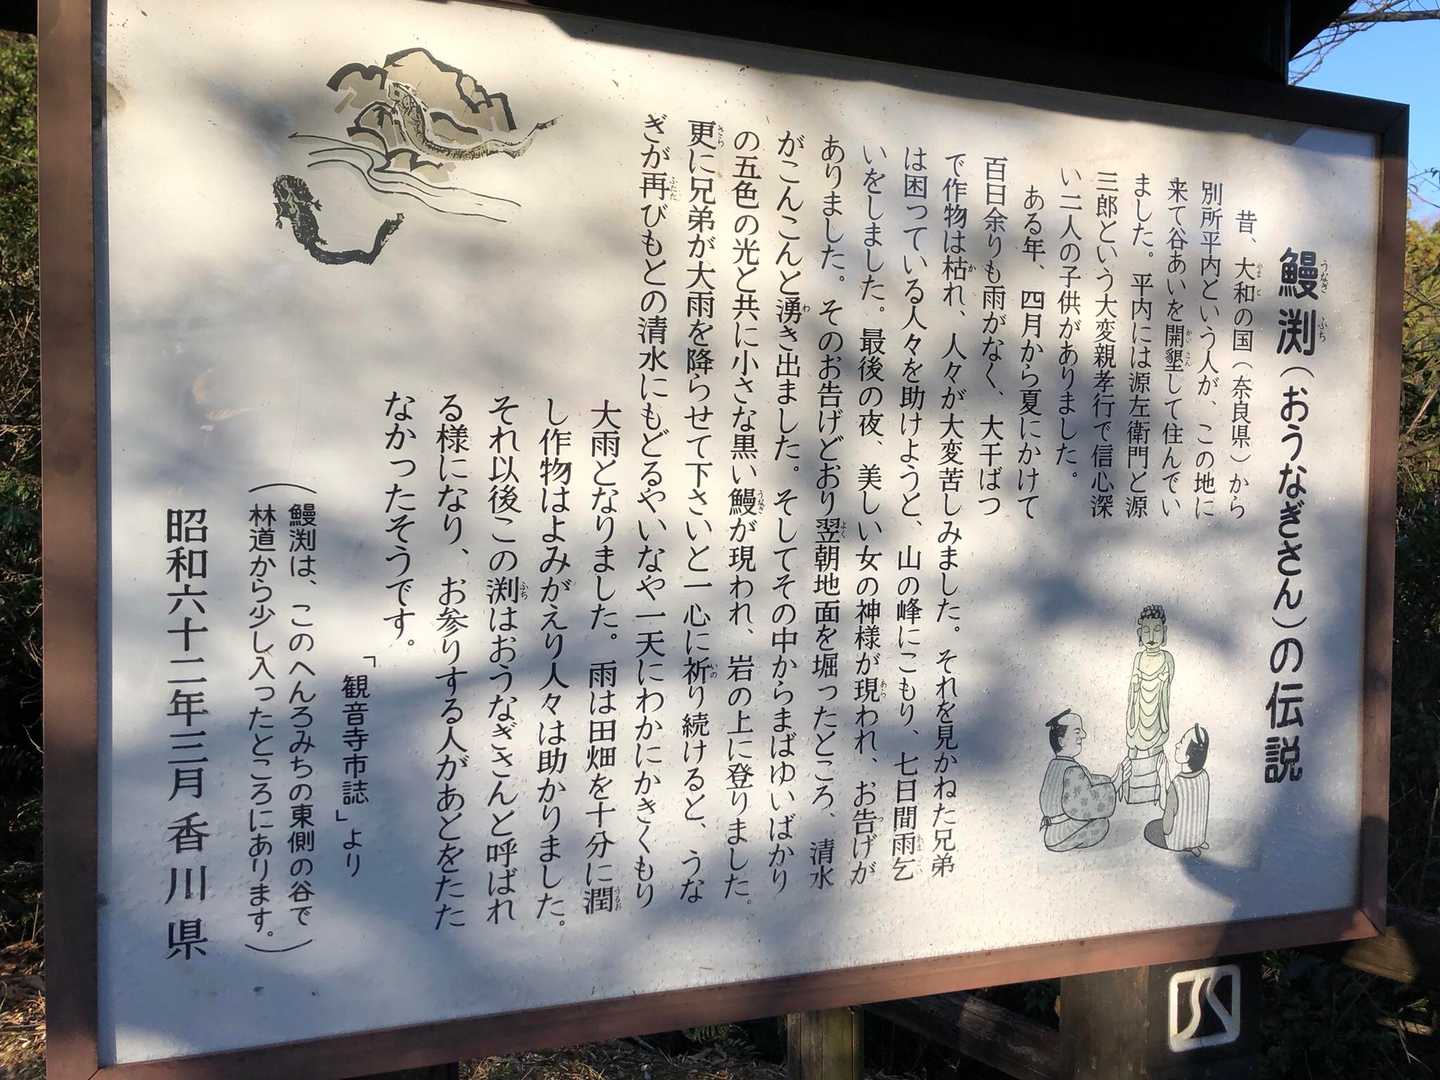 鰻渕（おうなぎさん）の伝説
昔、大和の国（奈良県）から
別所平内という人が、この地に
来て谷あいを開墾して住んでい
ました。平内には源左衛門と源
三郎という大変親孝行で信心深
い二人の子供がありました。
ある年、四月から夏にかけて
百日余りも雨がなく、大干ばつ
で作物は枯れ、人々が大変苦しみました。それを見かねた兄弟
は困っている人々を助けようと、山の峰にこもり、七日間雨乞
いをしました。最後の夜、美しい女の神様が現われ、お告げが
ありました。そのお告げどおり翌朝地面を堀ったところ、清水
がこんこんと湧き出ました。そしてその中からまばゆいばかり
の五色の光と共に小さな黒い鰻が現われ、岩の上に登りました。
更に兄弟が大雨を降らせて下さいと一心に祈り続けると、うな
ぎが再びもとの清水にもどるやいなや一天にわかにかきくもり
大雨となりました。雨は田畑を十分に潤
し作物はよみがえり人々は助かりました。
それ以後この渕はおうなぎさんと呼ばれ
る様になり、お参りする人があとをたた
なかったそうです。
「観音寺市誌」より
（鰻渕は、このへんろみちの東側の谷で
林道から少し入ったところにあります。）
昭和六十二年三月 香川県